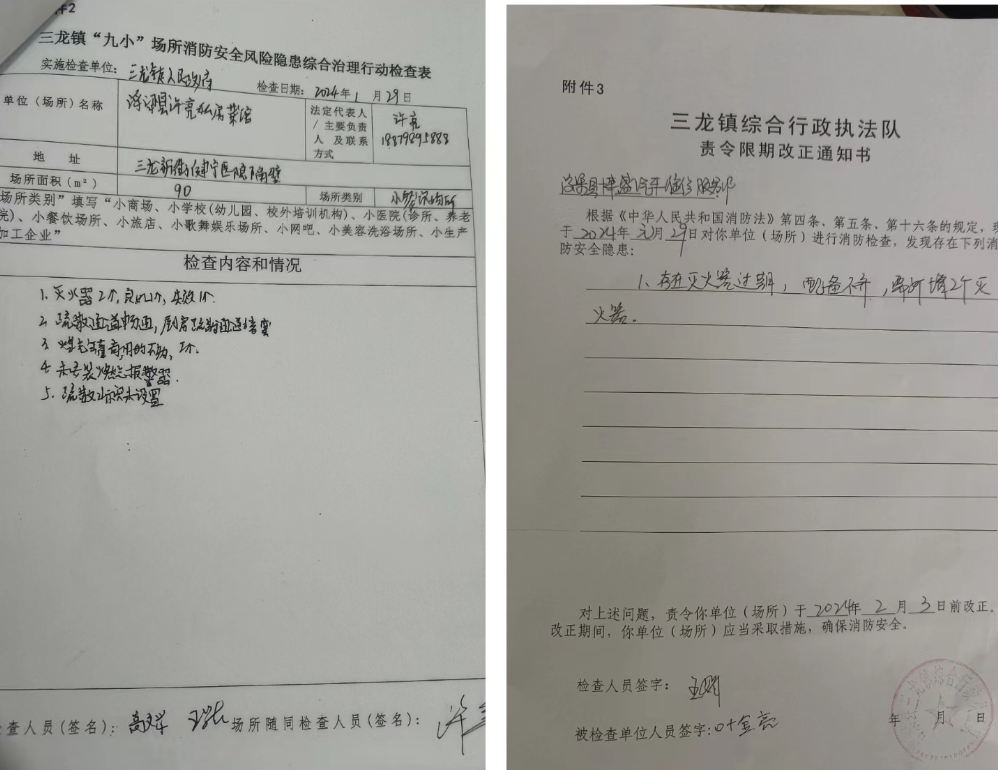 件2
三龙镇“九小”场所消防安全风险隐患综合治理行动检查表
实施检查单位：三龙镇人民政府
检查日期：2024年1月29日
单位（场所）名称
浮梁县许亮私房菜馆
法定代表人/主要负责人及联系方式
许亮
18879895883
地 址
三龙新街
隔壁
场所面积（m²）
90
场所类别
小餐饮场所
场所类别”填写“小商场、小学校(幼儿园、校外培训机构)、小医院(诊所、养老
院)、小餐饮场所、小旅店、小歌舞娱乐场所、小网吧、小美容洗浴场所、小生产
加工企业”
检查内容和情况
1. 灭火器2个,良好1个,失效1个.
2. 疏散通道畅通,
3. 煤气罐商用的不防, 2个.
4. 未安装燃气报警器.
5. 疏散标识未设置
查人员(签名)：
场所随同检查人员(签名)：
许
附件3
三龙镇综合行政执法队
责令限期改正通知书
浮梁县
汽车维修服务部
根据《中华人民共和国消防法》第四条、第五条、第十六条的规定，现
于2024年元月29日对你单位（场所）进行消防检查，发现存在下列消
防安全隐患：
1. 存在灭火器过期，配备不齐，需新增2个灭
火器.
对上述问题，责令你单位（场所）于2024年2月3日前改正。
改正期间，你单位（场所）应当采取措施，确保消防安全。
检查人员签字：
被检查单位人员签字：叶金亮
年 月 日